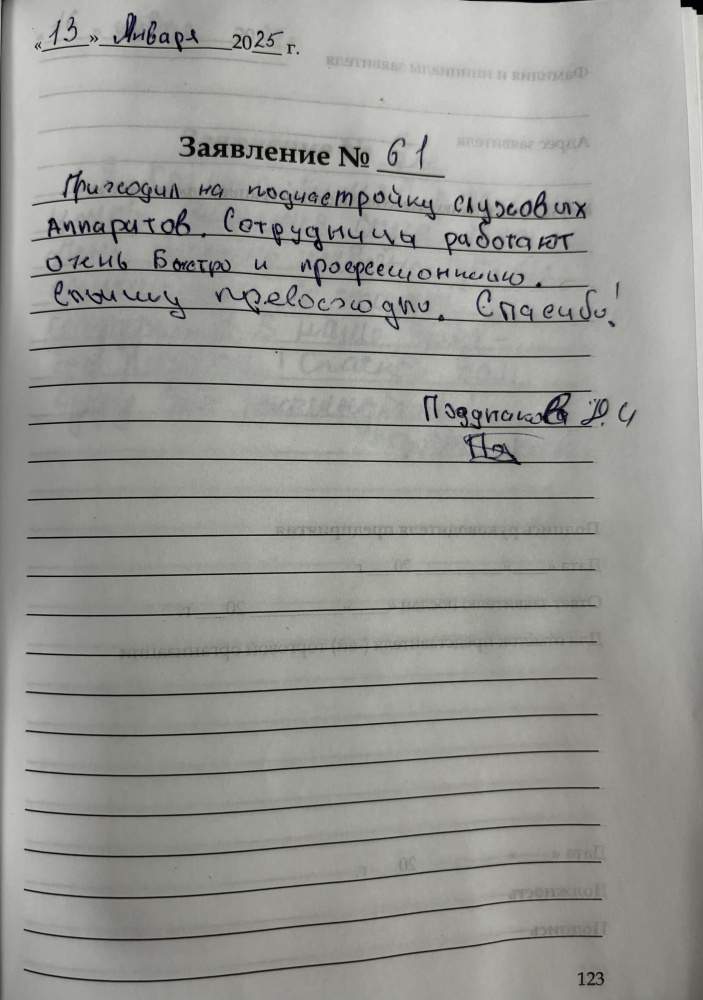 «13» Января 2025 г.
Заявление № 61
Приходил на поднастройку слуховых
Аппаратов. Сотрудницы работают
очень Быстро и профессионально.
Слышу превосходно. Спасибо!
123